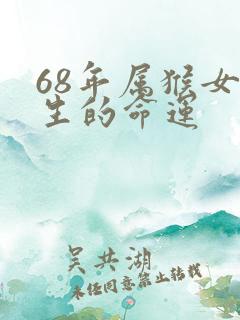 68年属猴女
生的命运
吴共湖
未经同意禁止转载